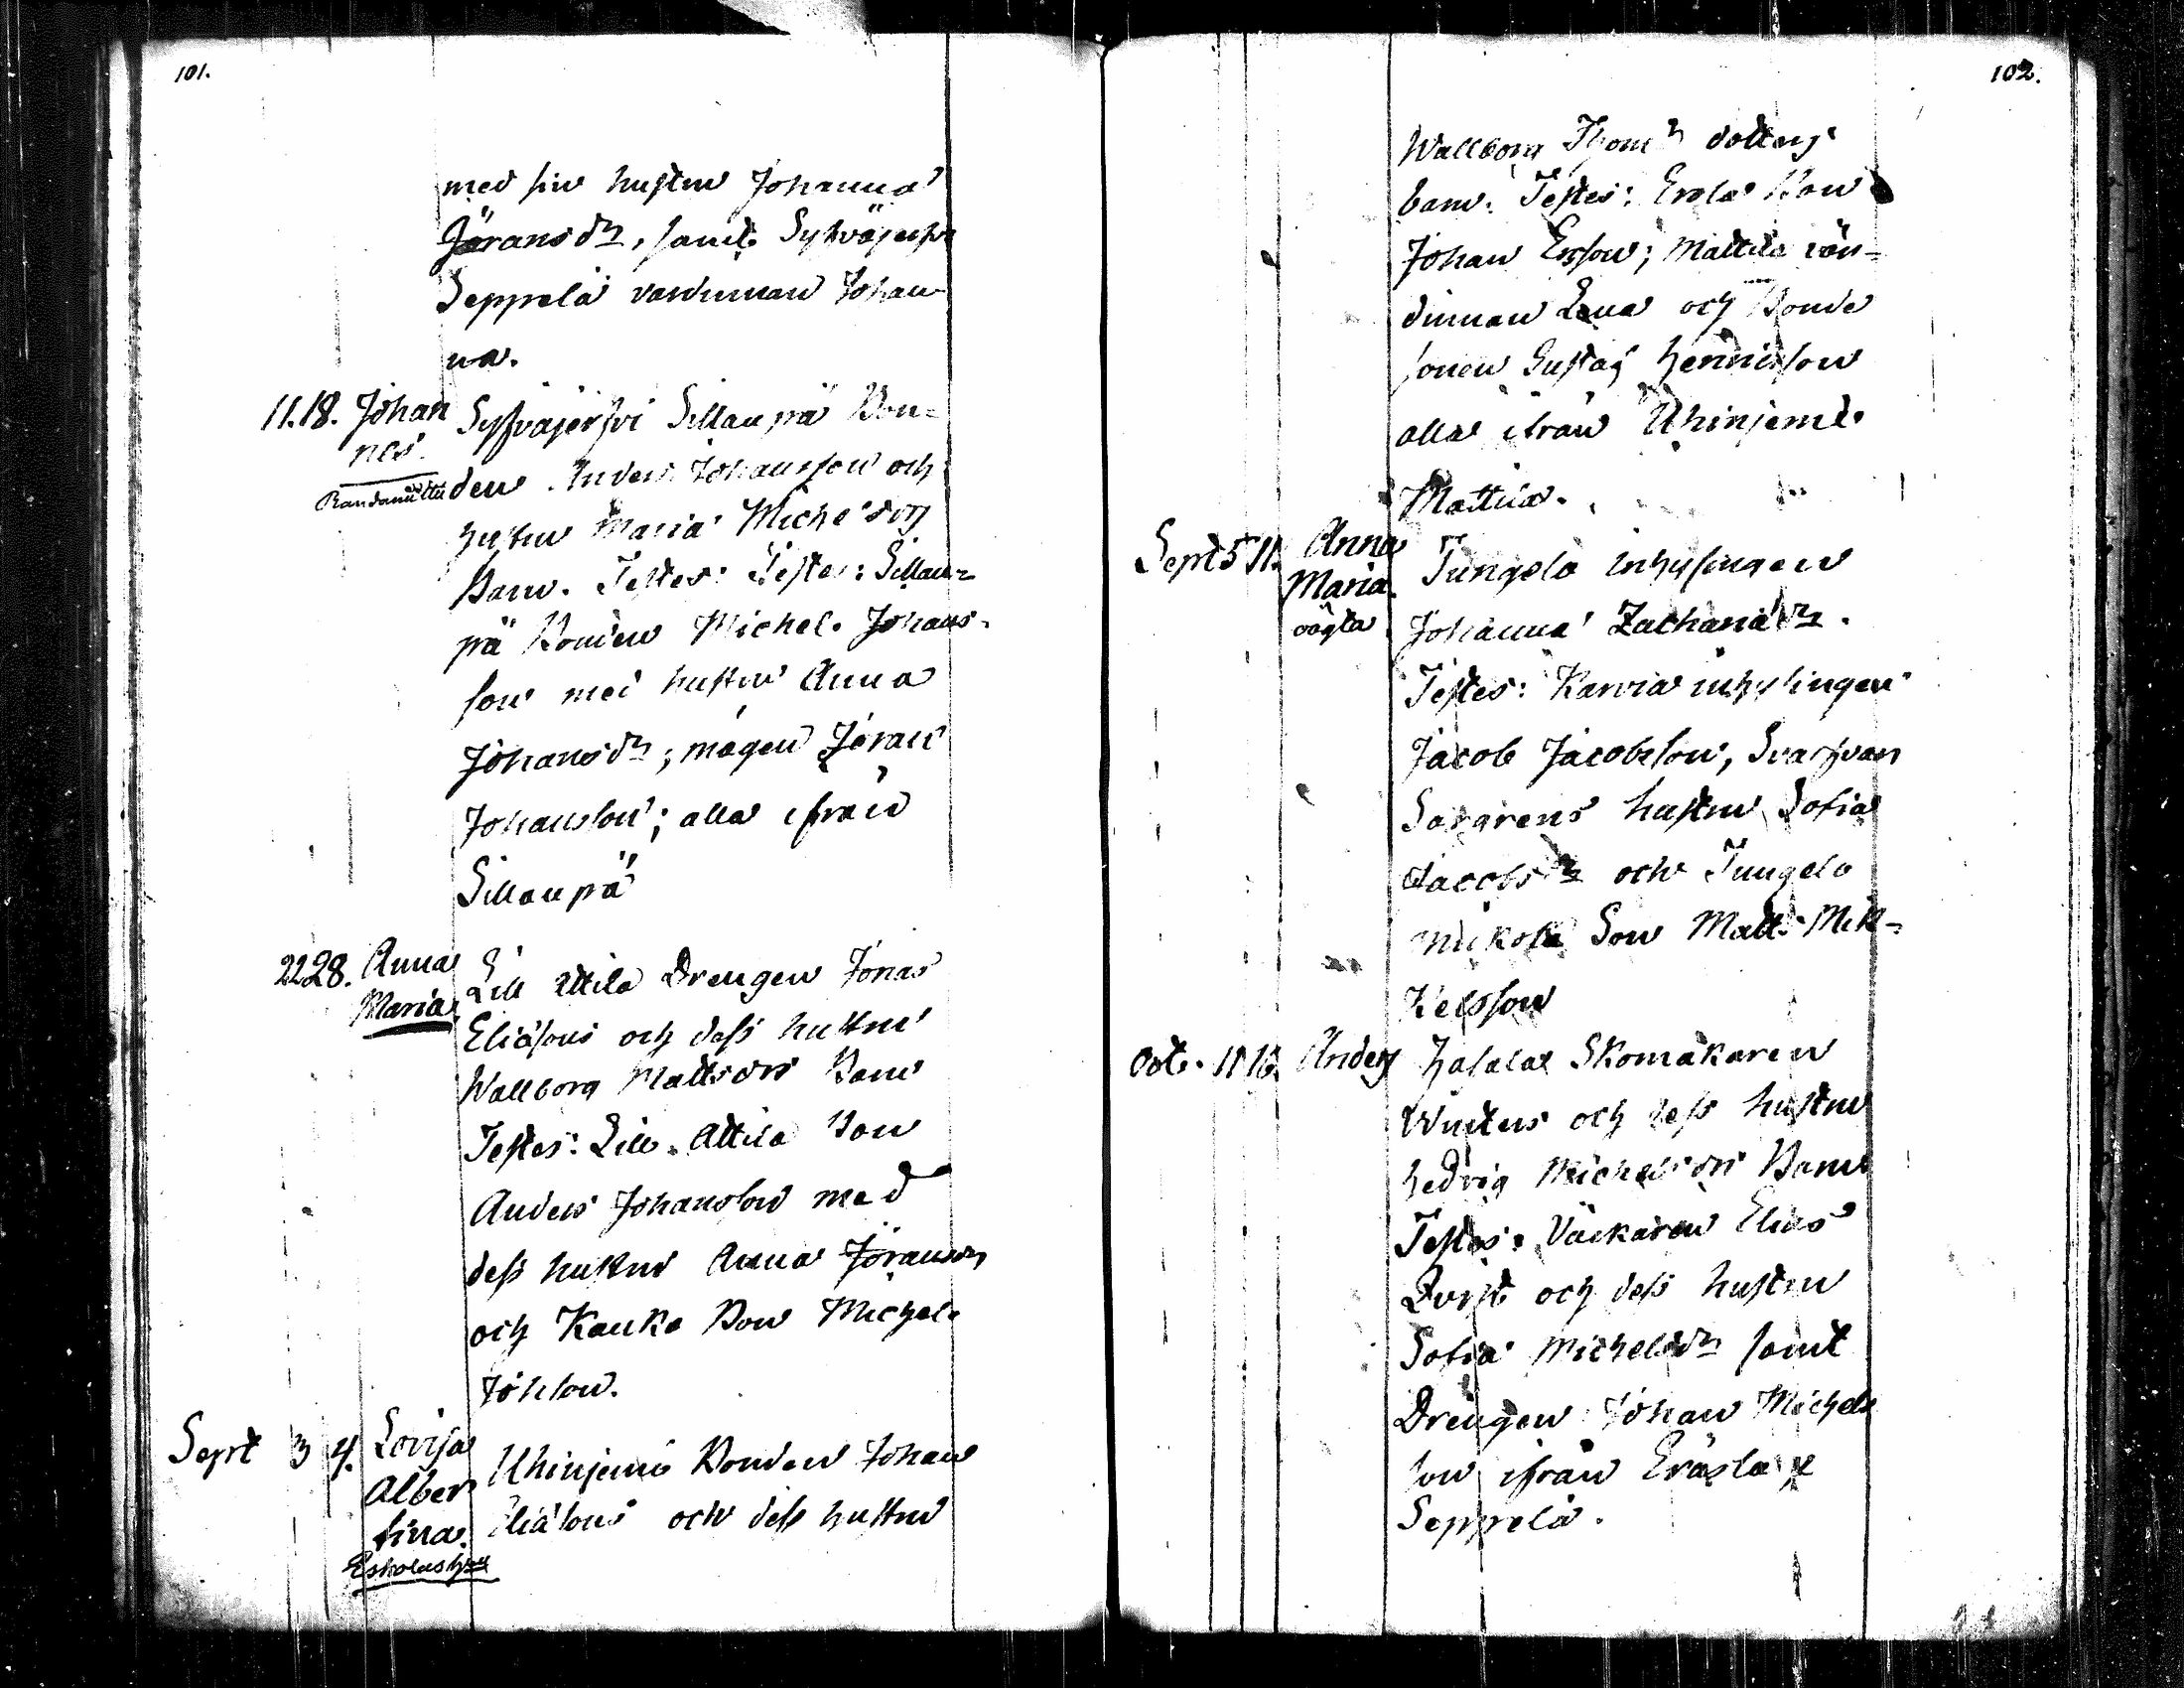 101.
med sin hustru Johanna
Jöransdr, samt Syfväjerfvi
Seppelä värdinnan Johan
na.
11. 18. Johan Syfväjerfvi Sillanpä Bon=
nes. den Anders Johansson och
hustru Maria Michelsdrs
Barn. Testes: Testes: Sillan=
pä Bonden Michel Johans-
son med hustru Anna
Johansdr; mågen Jöran
Johansson; alla ifrån
Sillanpä
22 28. Anna Lill Attila Drengen Jonas
Maria. Eliäsons och dess hustru
Wallborg Mattsdrs Barn
Testes: Lill. Attila Bon
Anders Johansson med
dess hustru Anna Jöransdr
och Kauka Bon Michel
Johsson.
Sept 3 4. Lovisa Uhinjemi Bonden Johan
Alber Eliäsons och dess hustru
tina.
102.
Wallborg Thomdr dotters
barn. Testes: Erola Bon
Johan Ersson; Mattila vär-
dinnan Lena och Bonde
sonen Gustaf Henricsson
alla ifrån Uhinjemi
Mattila.
Sept 5 11. Anna Jungelo inhysingen
Maria. Johanna Zachariädr.
oägta Testes: Karvia inhysingen
Jacob Jacobsson, Svarfvar
hustru Sofia
Jacobsdr och Jungelo
Mickola Son Matts Mik-
kelsson
Oct. 11 16. Anders Skomakaren
och dess hustru
Hedvig Michelsdrs Barn
Testes: Väckaren Elias
Qvist och dess hustru
Sofia Michelsdr samt
Drengen Johan Michels
son ifrån
Seppelä.